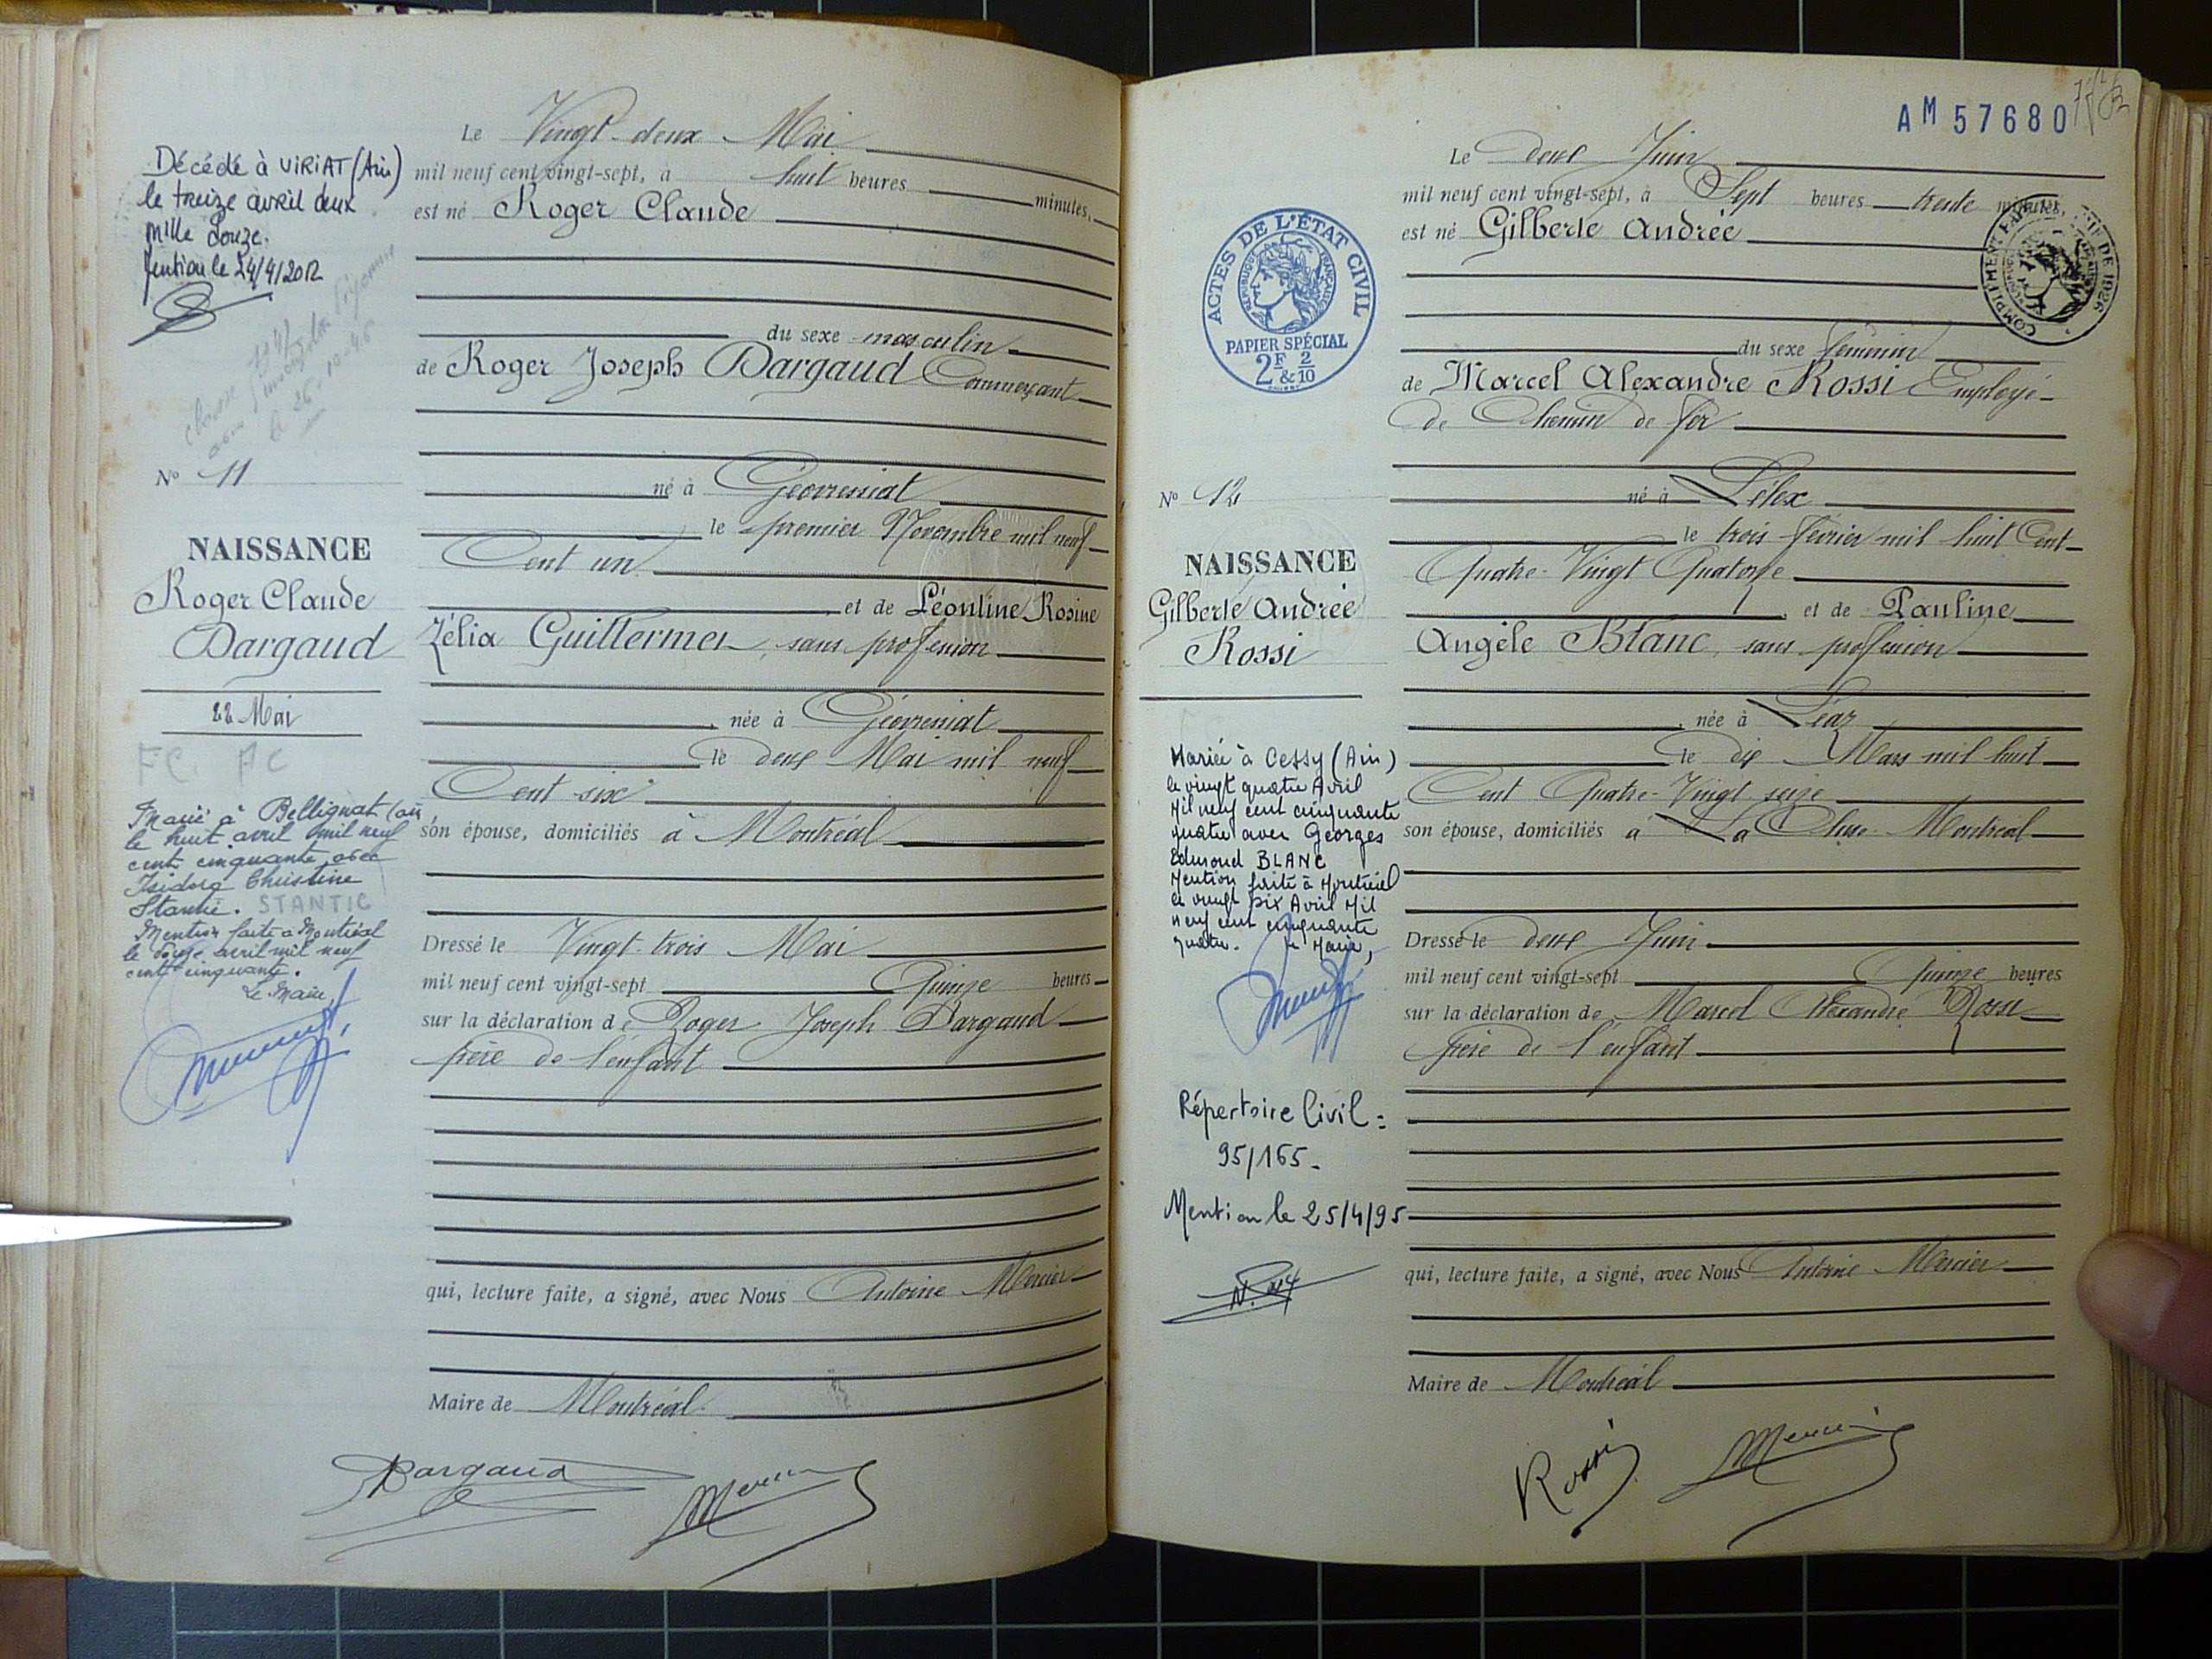 Le Vingt-deux Mai
mil neuf cent vingt-sept, à huit heures minutes,
est né Roger Claude
du sexe masculin
de Roger Joseph Dargaud Commerçant
né à Géovreissiat
le premier Novembre mil neuf
Cent un
et de Léontine Rosine
Zélia Guillermet, sans profession
née à Géovreissiat
le deux Mai mil neuf
Cent six
son épouse, domiciliés à Montréal
Dressé le Vingt-trois Mai
mil neuf cent vingt-sept Quinze heures
sur la déclaration de Roger Joseph Dargaud
père de l'enfant
qui, lecture faite, a signé, avec Nous Antoine Mercier
Maire de Montréal
Dargaud
Mercier
Décédé à VIRIAT (Ain)
le treize avril deux
mille douze.
Mention le 24/4/2012
le 26-10-46
No 11
NAISSANCE
Roger Claude
Dargaud
22 Mai
FC. AC
Marié à Bellignat (ain)
le huit avril mil neuf
cent cinquante, avec
Isidora Christine
Stantic. STANTIC
Mention faite a Montréal
le douze avril mil neuf
cent cinquante.
Le Maire,
AM 57680
Le deux Juin
mil neuf cent vingt-sept, à Sept heures trente minutes,
est né Gilberte Andrée
du sexe féminin
de Marcel Alexandre Rossi Employé
de Chemin de fer
né à Lélex
le trois février mil huit Cent
Quatre-Vingt Quatorze
et de Pauline
Angèle Blanc, sans profession
née à Léaz
le dix Mars mil huit
Cent Quatre-Vingt seize
son épouse, domiciliés à La Cluse-Montréal
Dressé le deux Juin
mil neuf cent vingt-sept Quinze heures
sur la déclaration de Marcel Alexandre Rossi
père de l'enfant
qui, lecture faite, a signé, avec Nous Antoine Mercier
Maire de Montréal
Rossi
Mercier
ACTES DE L'ÉTAT CIVIL
RÉPUBLIQUE FRANÇAISE
PAPIER SPÉCIAL
2F & 2/10
No 12
NAISSANCE
Gilberte Andrée
Rossi
Mariée à Cessy (Ain)
le vingt quatre Avril
Mil neuf cent cinquante
quatre avec Georges
Edmond BLANC
Mention faite à Montréal
le vingt six Avril Mil
neuf cent cinquante
quatre. Le Maire,
Répertoire Civil :
95/165.
Mention le 25/4/95